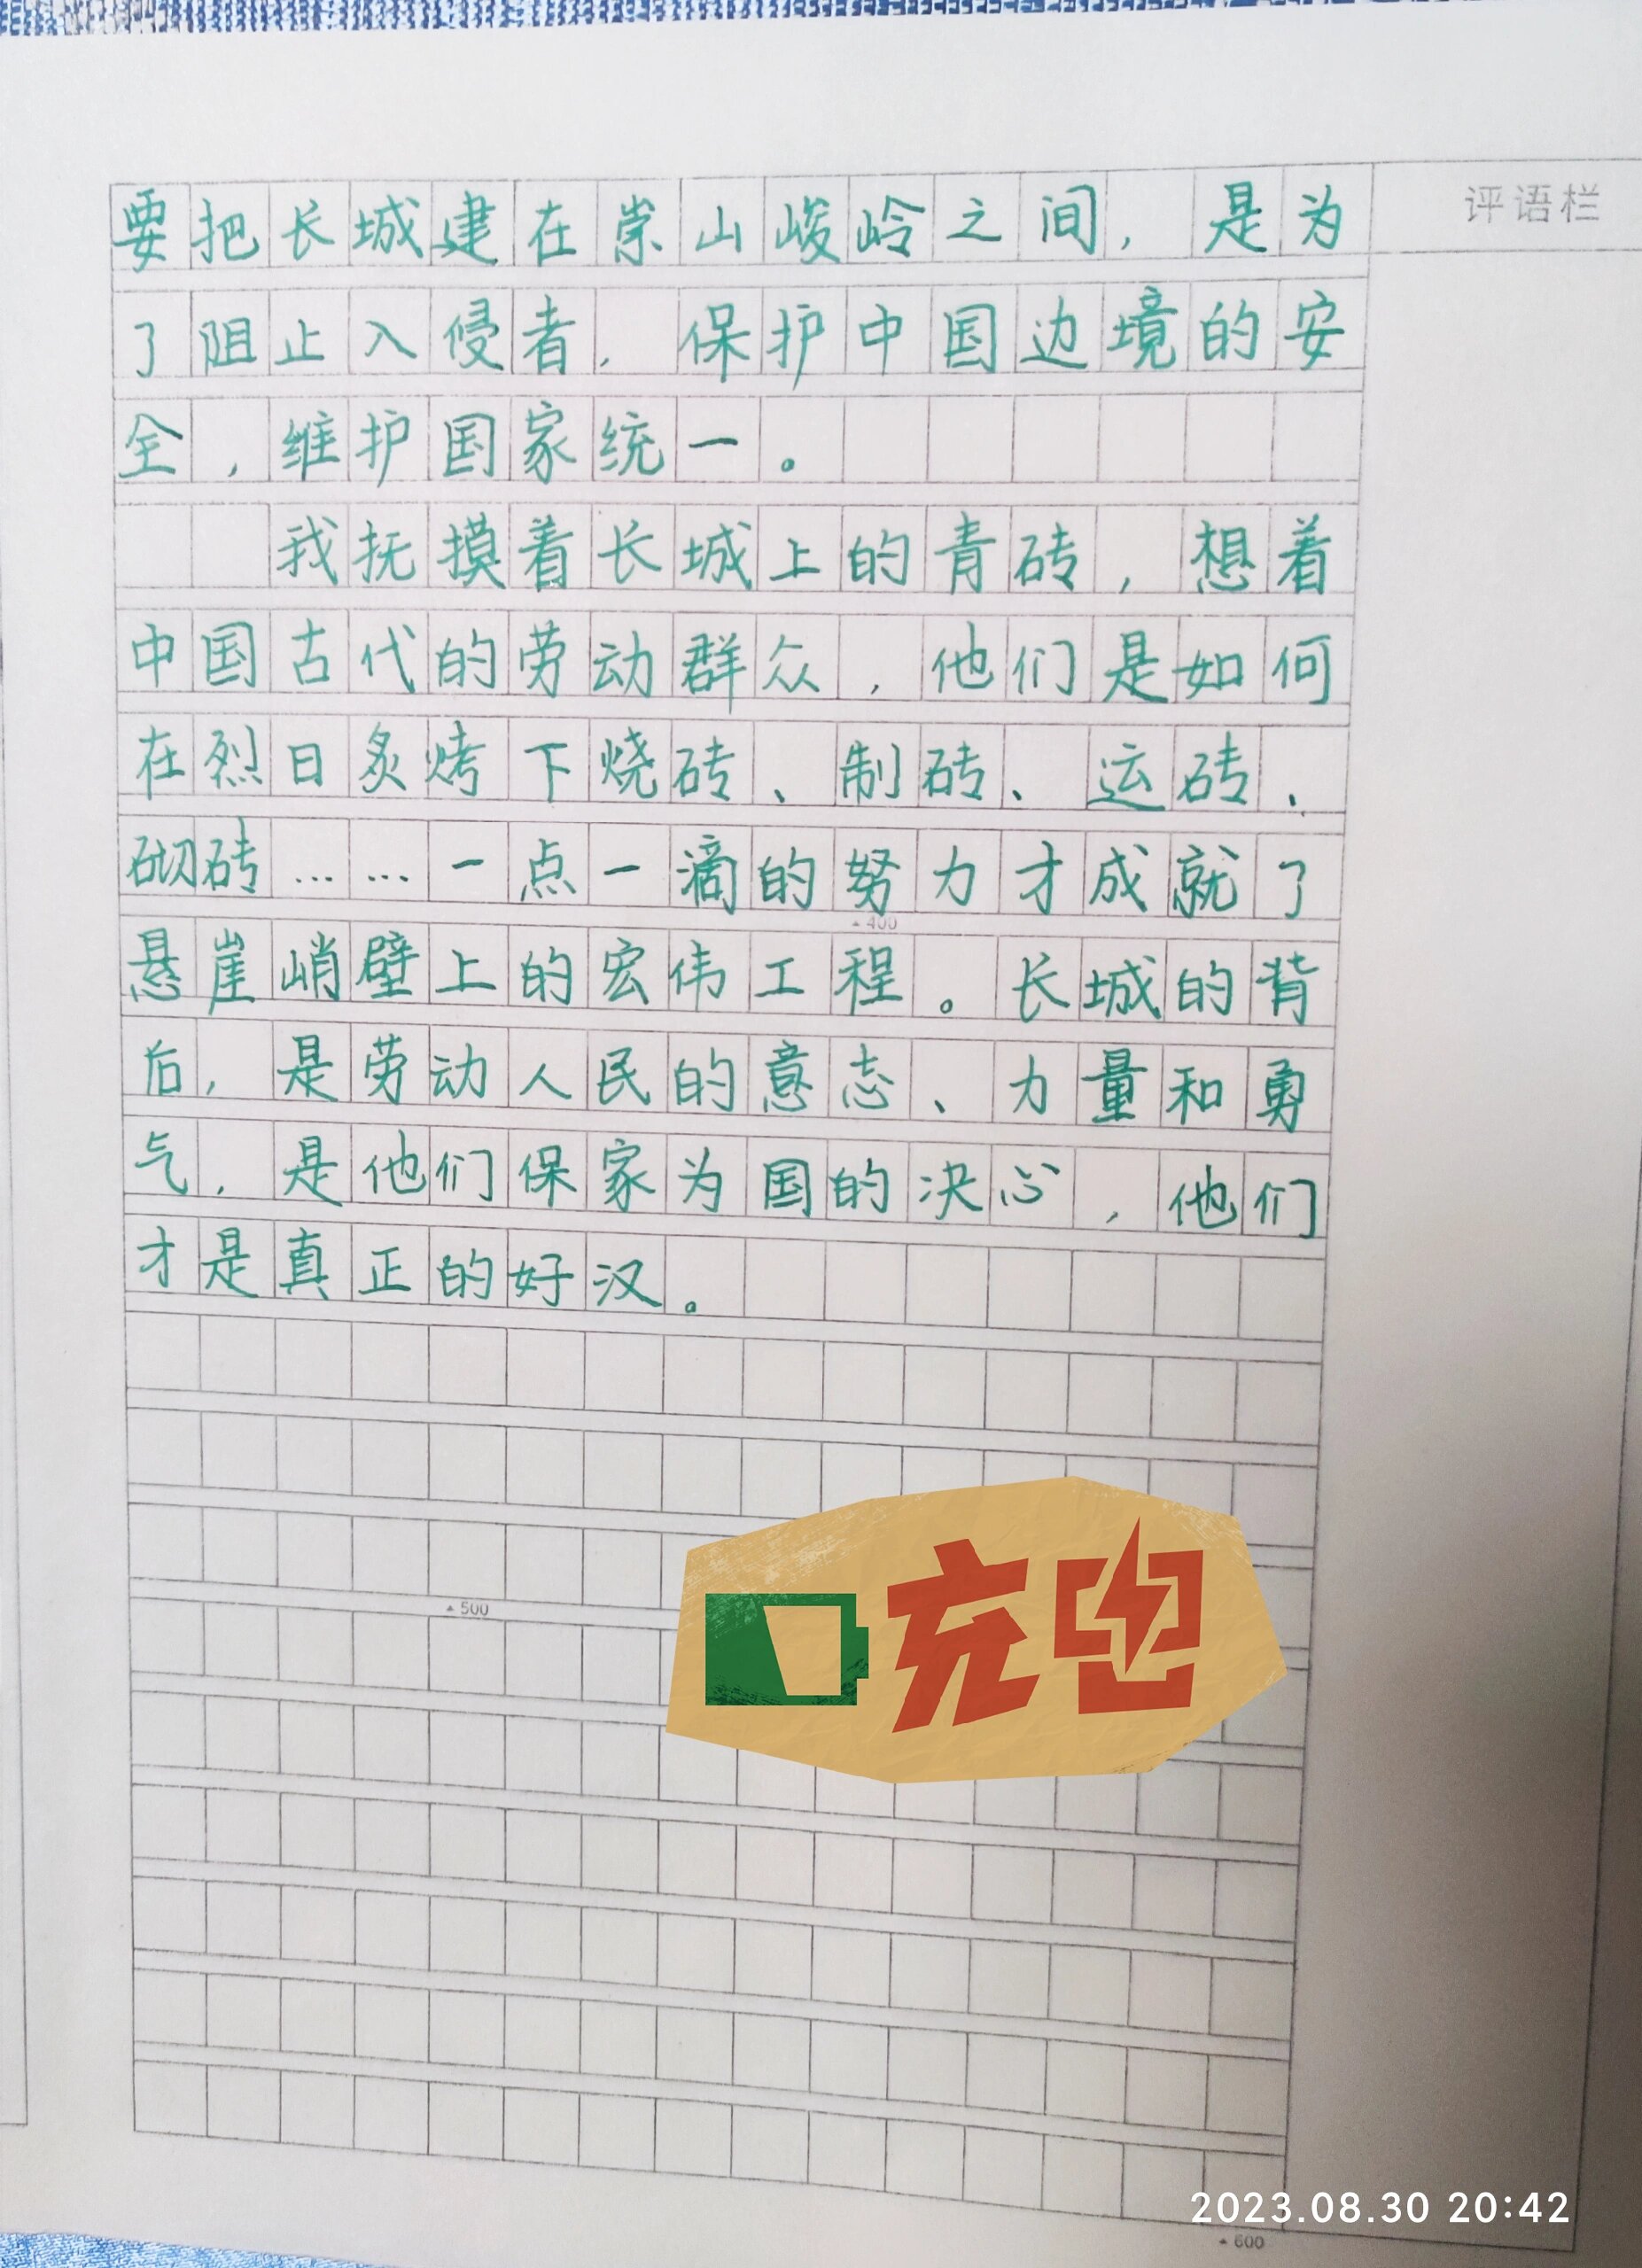 评语栏
要把长城建在崇山峻岭之间，是为
了阻止入侵者，保护中国边境的安
全，维护国家统一。
我抚摸着长城上的青砖，想着
中国古代的劳动群众，他们是如何
在烈日炙烤下烧砖、制砖、运砖、
砌砖……一点一滴的努力才成就了
400
悬崖峭壁上的宏伟工程。长城的背
后，是劳动人民的意志、力量和勇
气，是他们保家为国的决心，他们
才是真正的好汉。
充电
500
2023.08.30 20:42
600